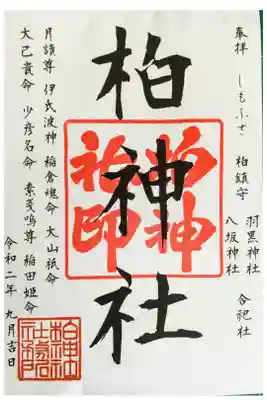 奉拝 しもふさ 柏鎮守
羽黒神社
八坂神社
合祀社
柏神社
柏神
社印
月読尊 伊氐波神 稲倉魂命 大山祇命
大己貴命 少彦名命 素戔嗚尊 稲田姫命
令和二年 九月吉日